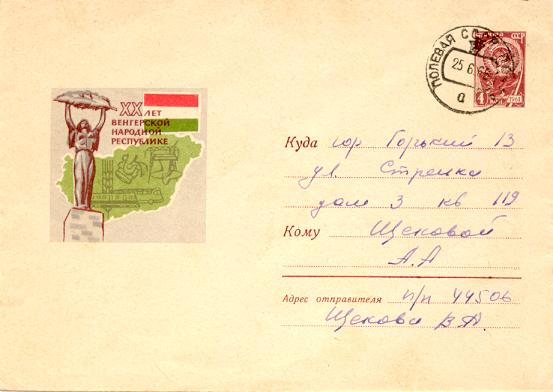 ПОЛЕВАЯ СССР
25.6.6
а
4
1961
XX ЛЕТ
ВЕНГЕРСКОЙ
НАРОДНОЙ
РЕСПУБЛИКЕ
Куда гор Горький 13
ул. Стрелка
дом 3 кв 119
Кому Щековой
А.А
Адрес отправителя п/п 44506
Щекова В.А.